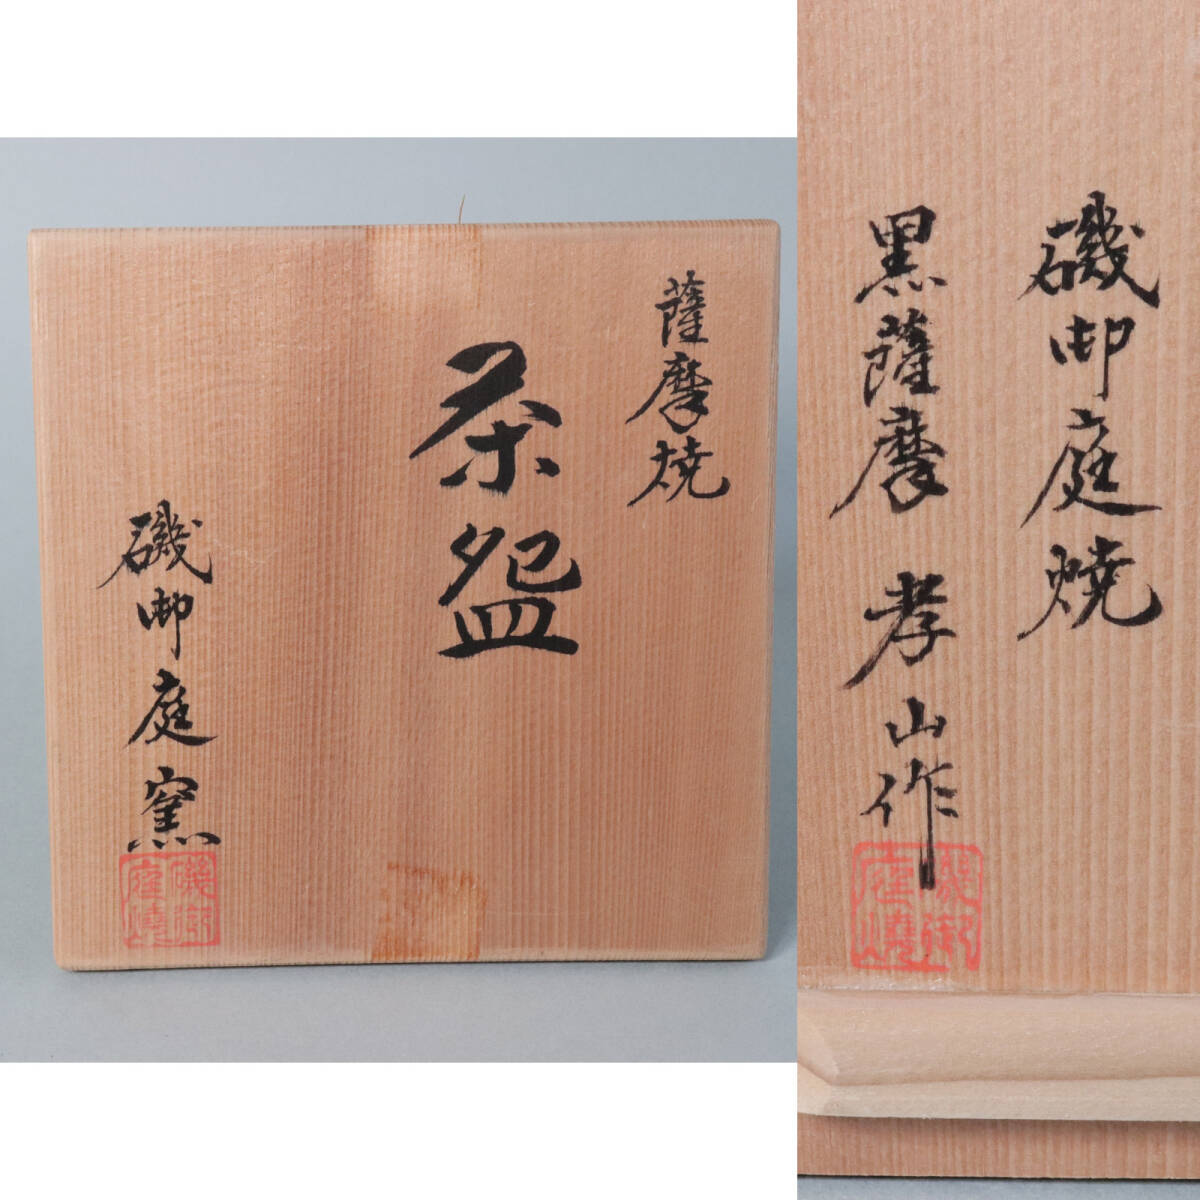 薩摩焼
茶盌
磯御庭窯
磯御庭焼
磯御庭焼
黒薩摩 孝山作
磯御庭焼